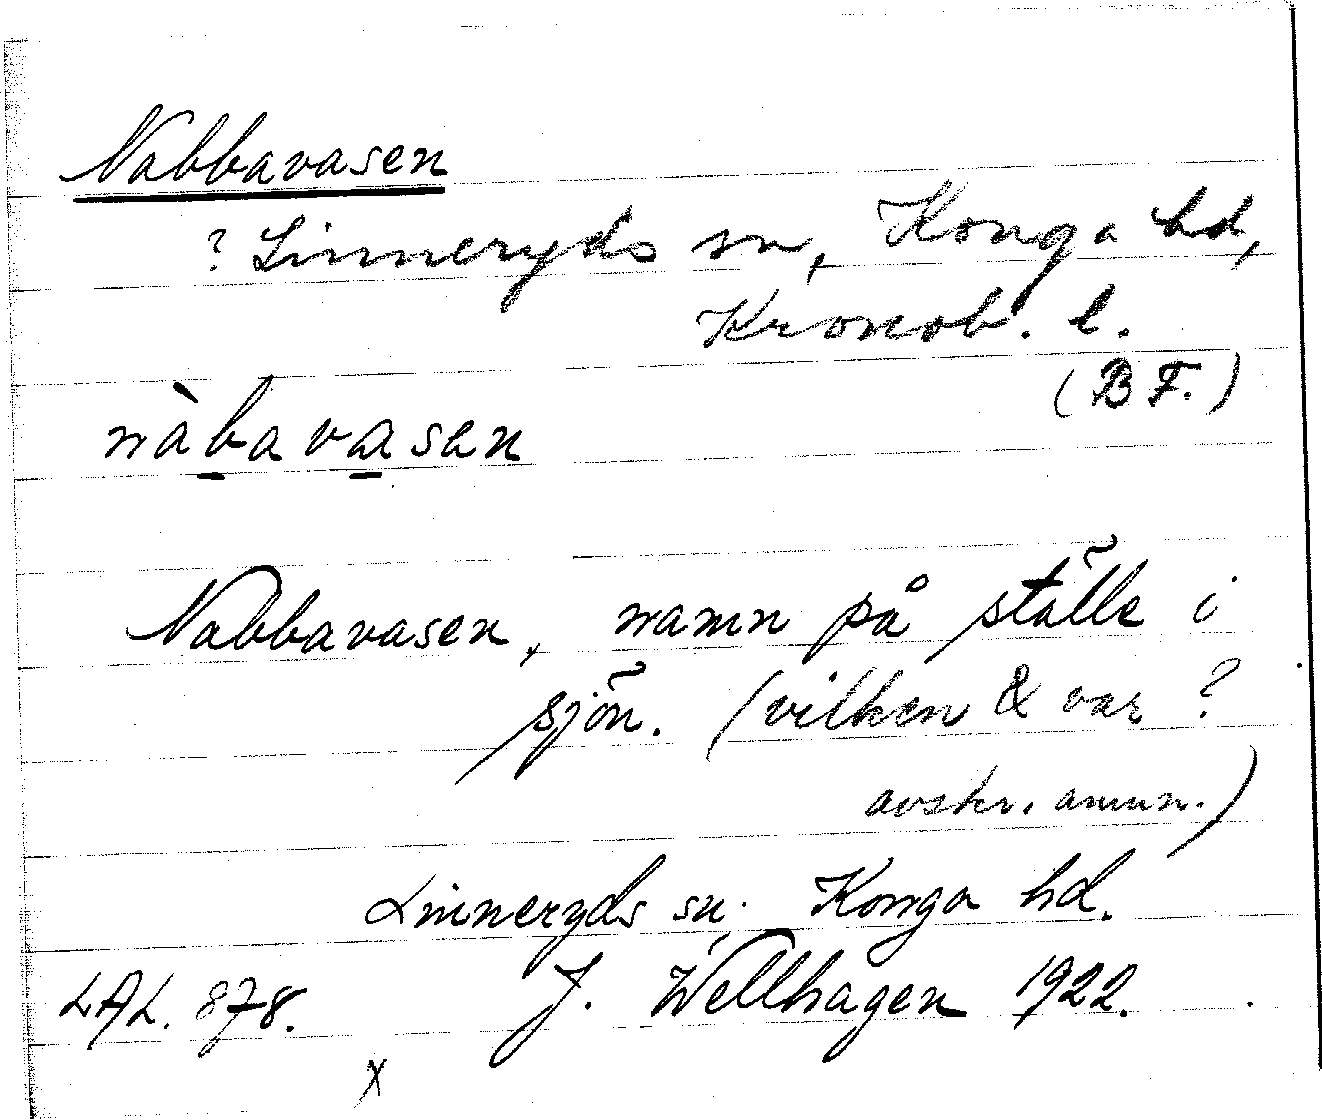 Nabbavasen
? Linneryds sn, Konga hd,
Kronob. l.
(BF.)
nàbavasen
Nabbavasen, namn på ställe i
sjön. (vilken & var ?
avskr. anmn.)
Linneryds sn. Konga hd.
LAL. 878. J. Wellhagen 1922.
x